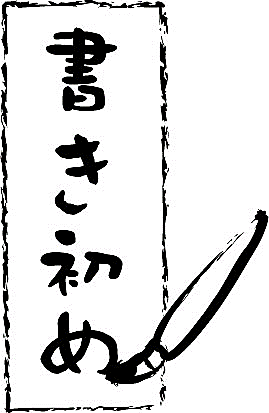 書き初め